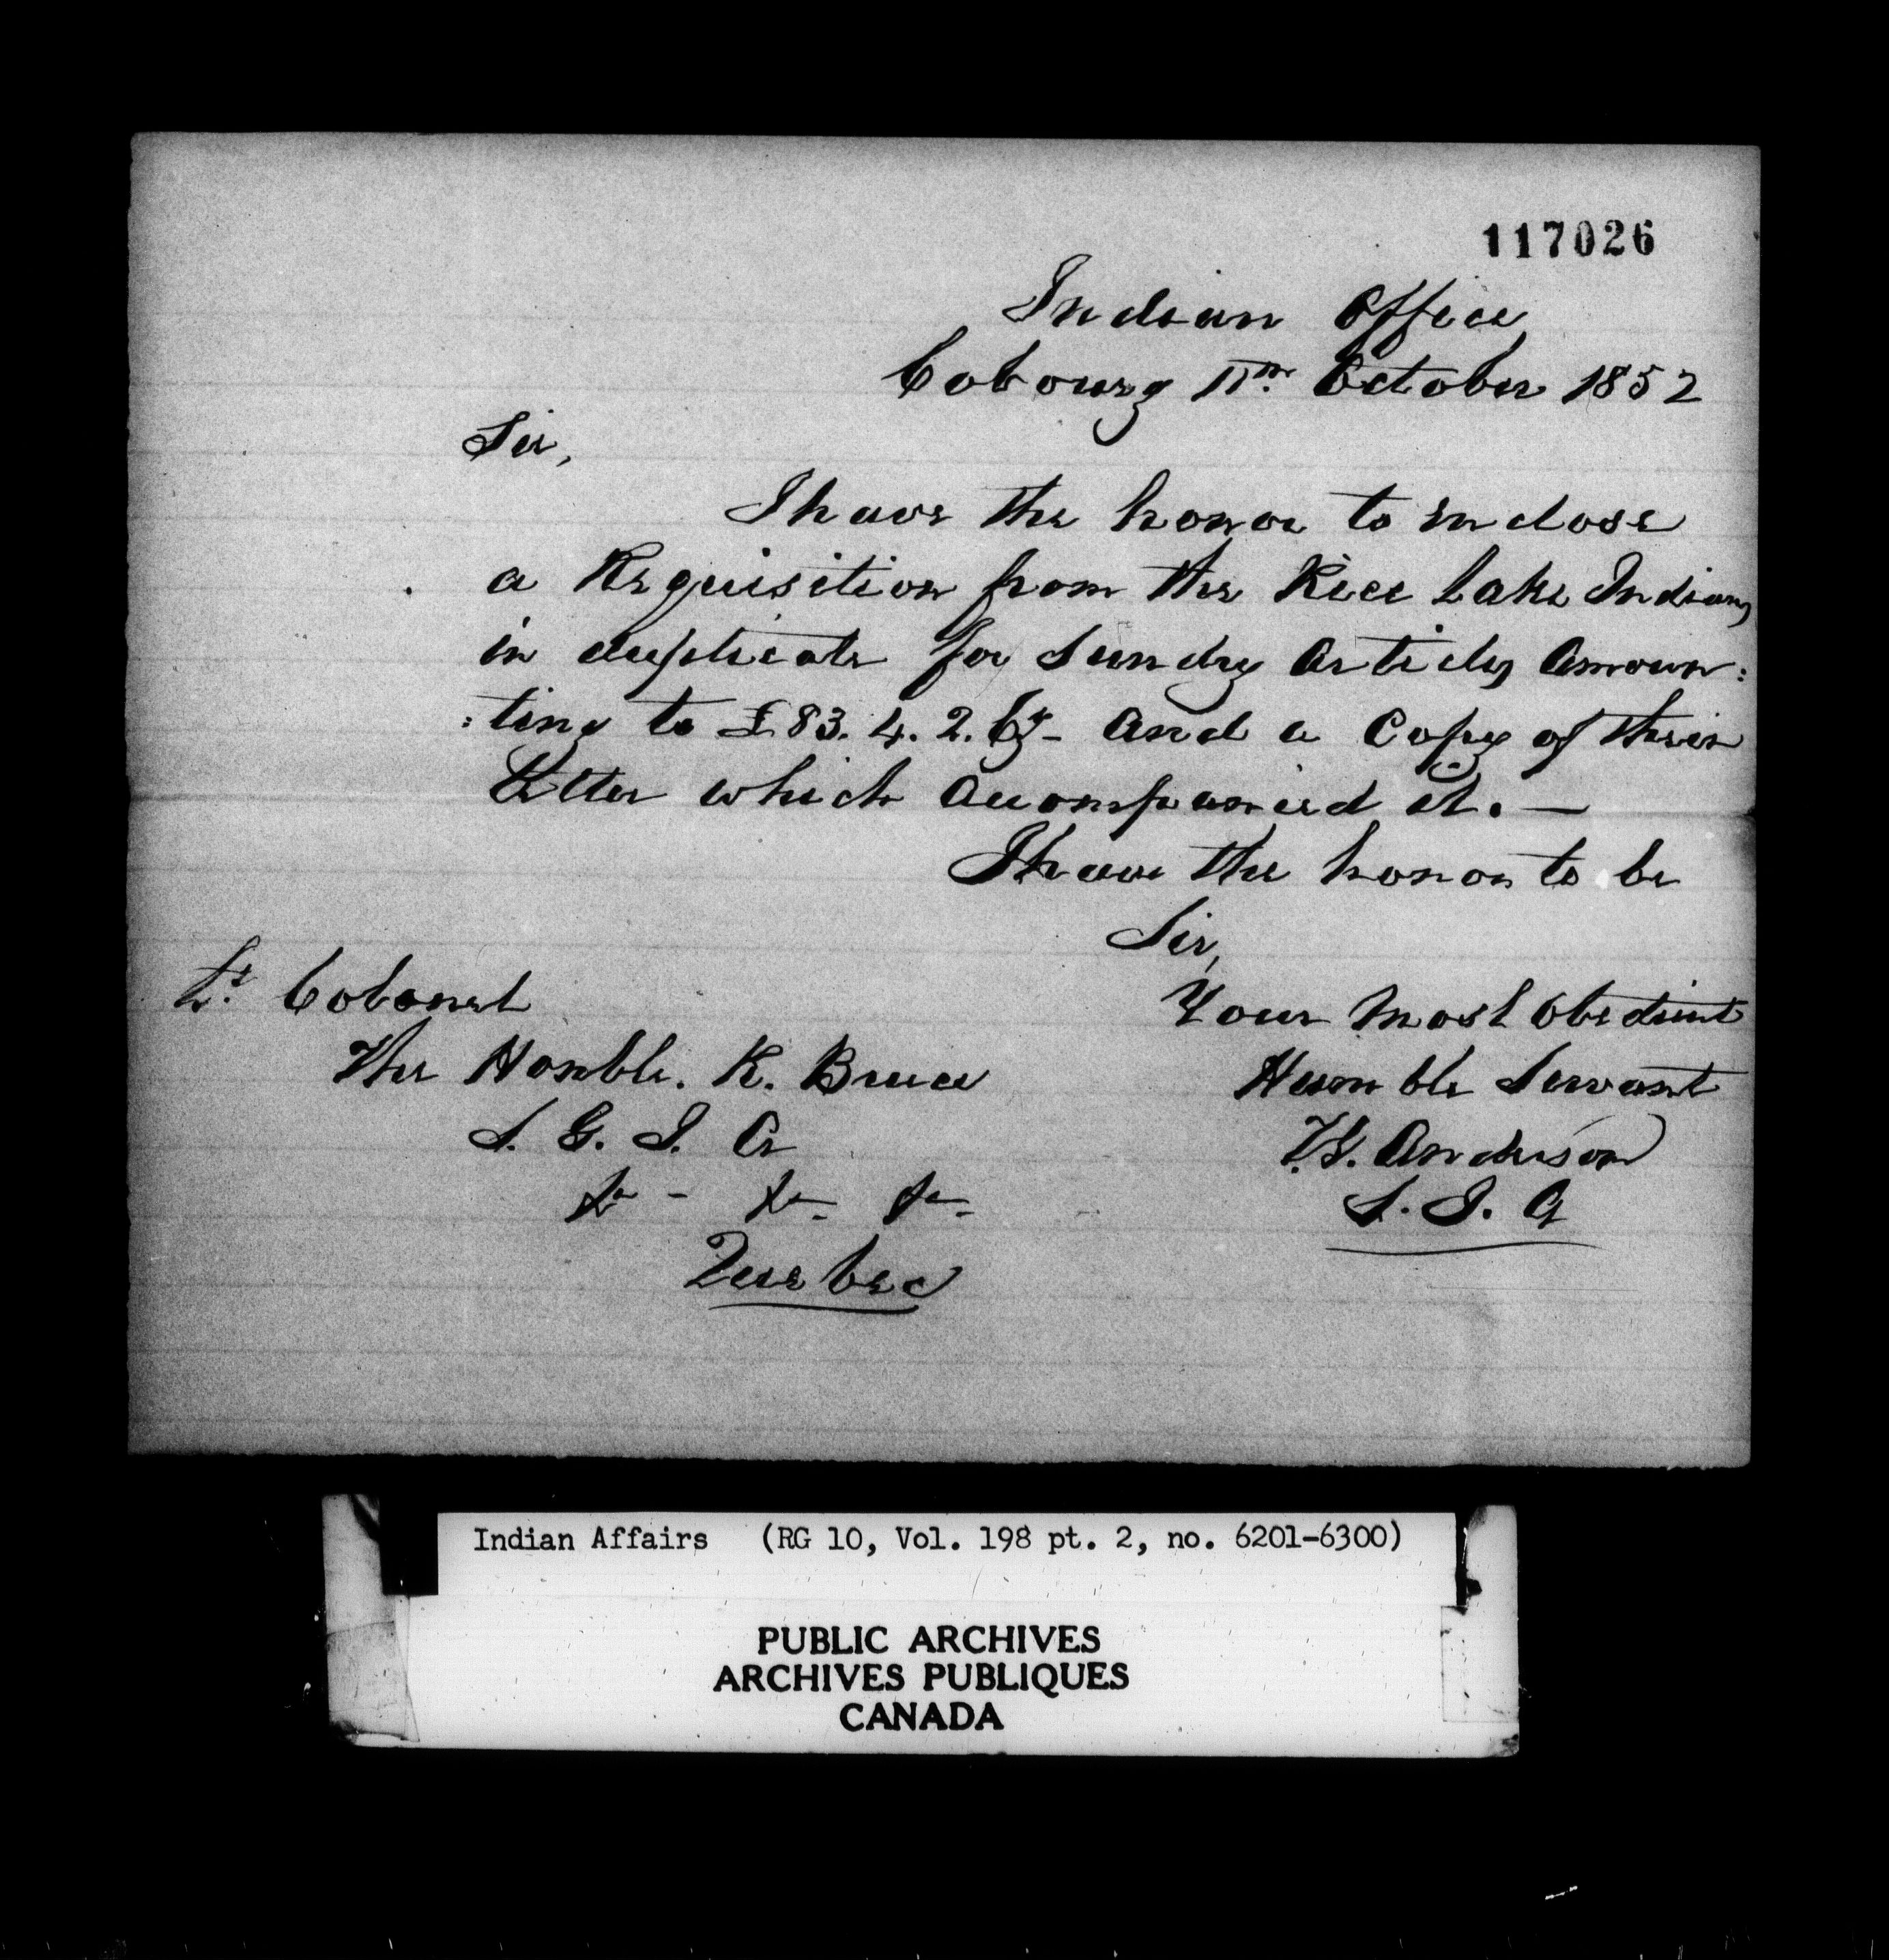 117026
Indian Office
Cobourg 11th October 1852
Sir,
I have the honor to enclose
a Requisition from the Rice Lake Indians
in duplicate for Sundry Articles Amoun:
:ting to £83. 4. 2. Cy- And a Copy of their
Letter which accompanied it. —
I have the honor to be
Sir,
Your Most Obedient
Humble Servant
T.G. Anderson
S. I. A
Lt. Colonel
The Honble. R. Bruce
S. G. I. A
&c - &c. &c.
Quebec
Indian Affairs (RG 10, Vol. 198 pt. 2, no. 6201-6300)
PUBLIC ARCHIVES
ARCHIVES PUBLIQUES
CANADA